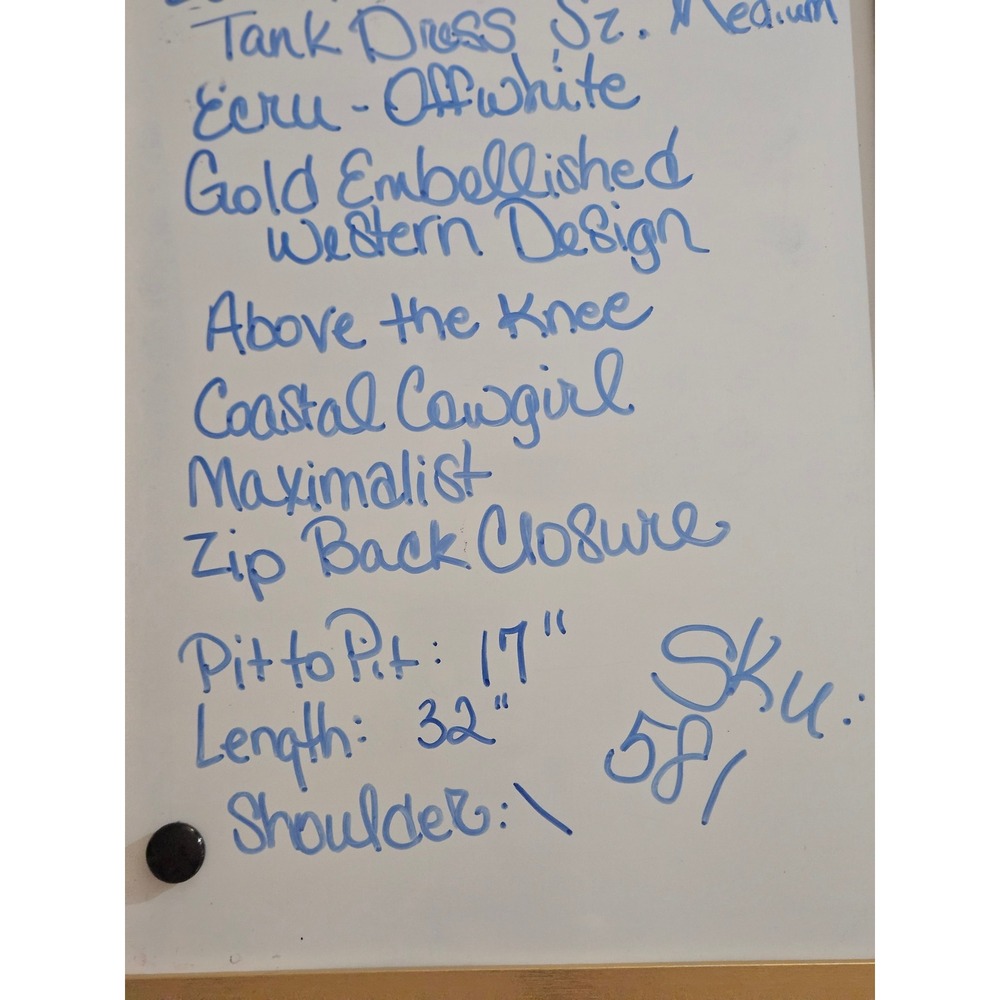 Tank Dress Sz. Medium
Ecru - Offwhite
Gold Embellished
Western Design
Above the Knee
Coastal Cowgirl
Maximalist
Zip Back Closure
Pit to Pit: 17"
Length: 32"
Shoulder: \
SKu:
581